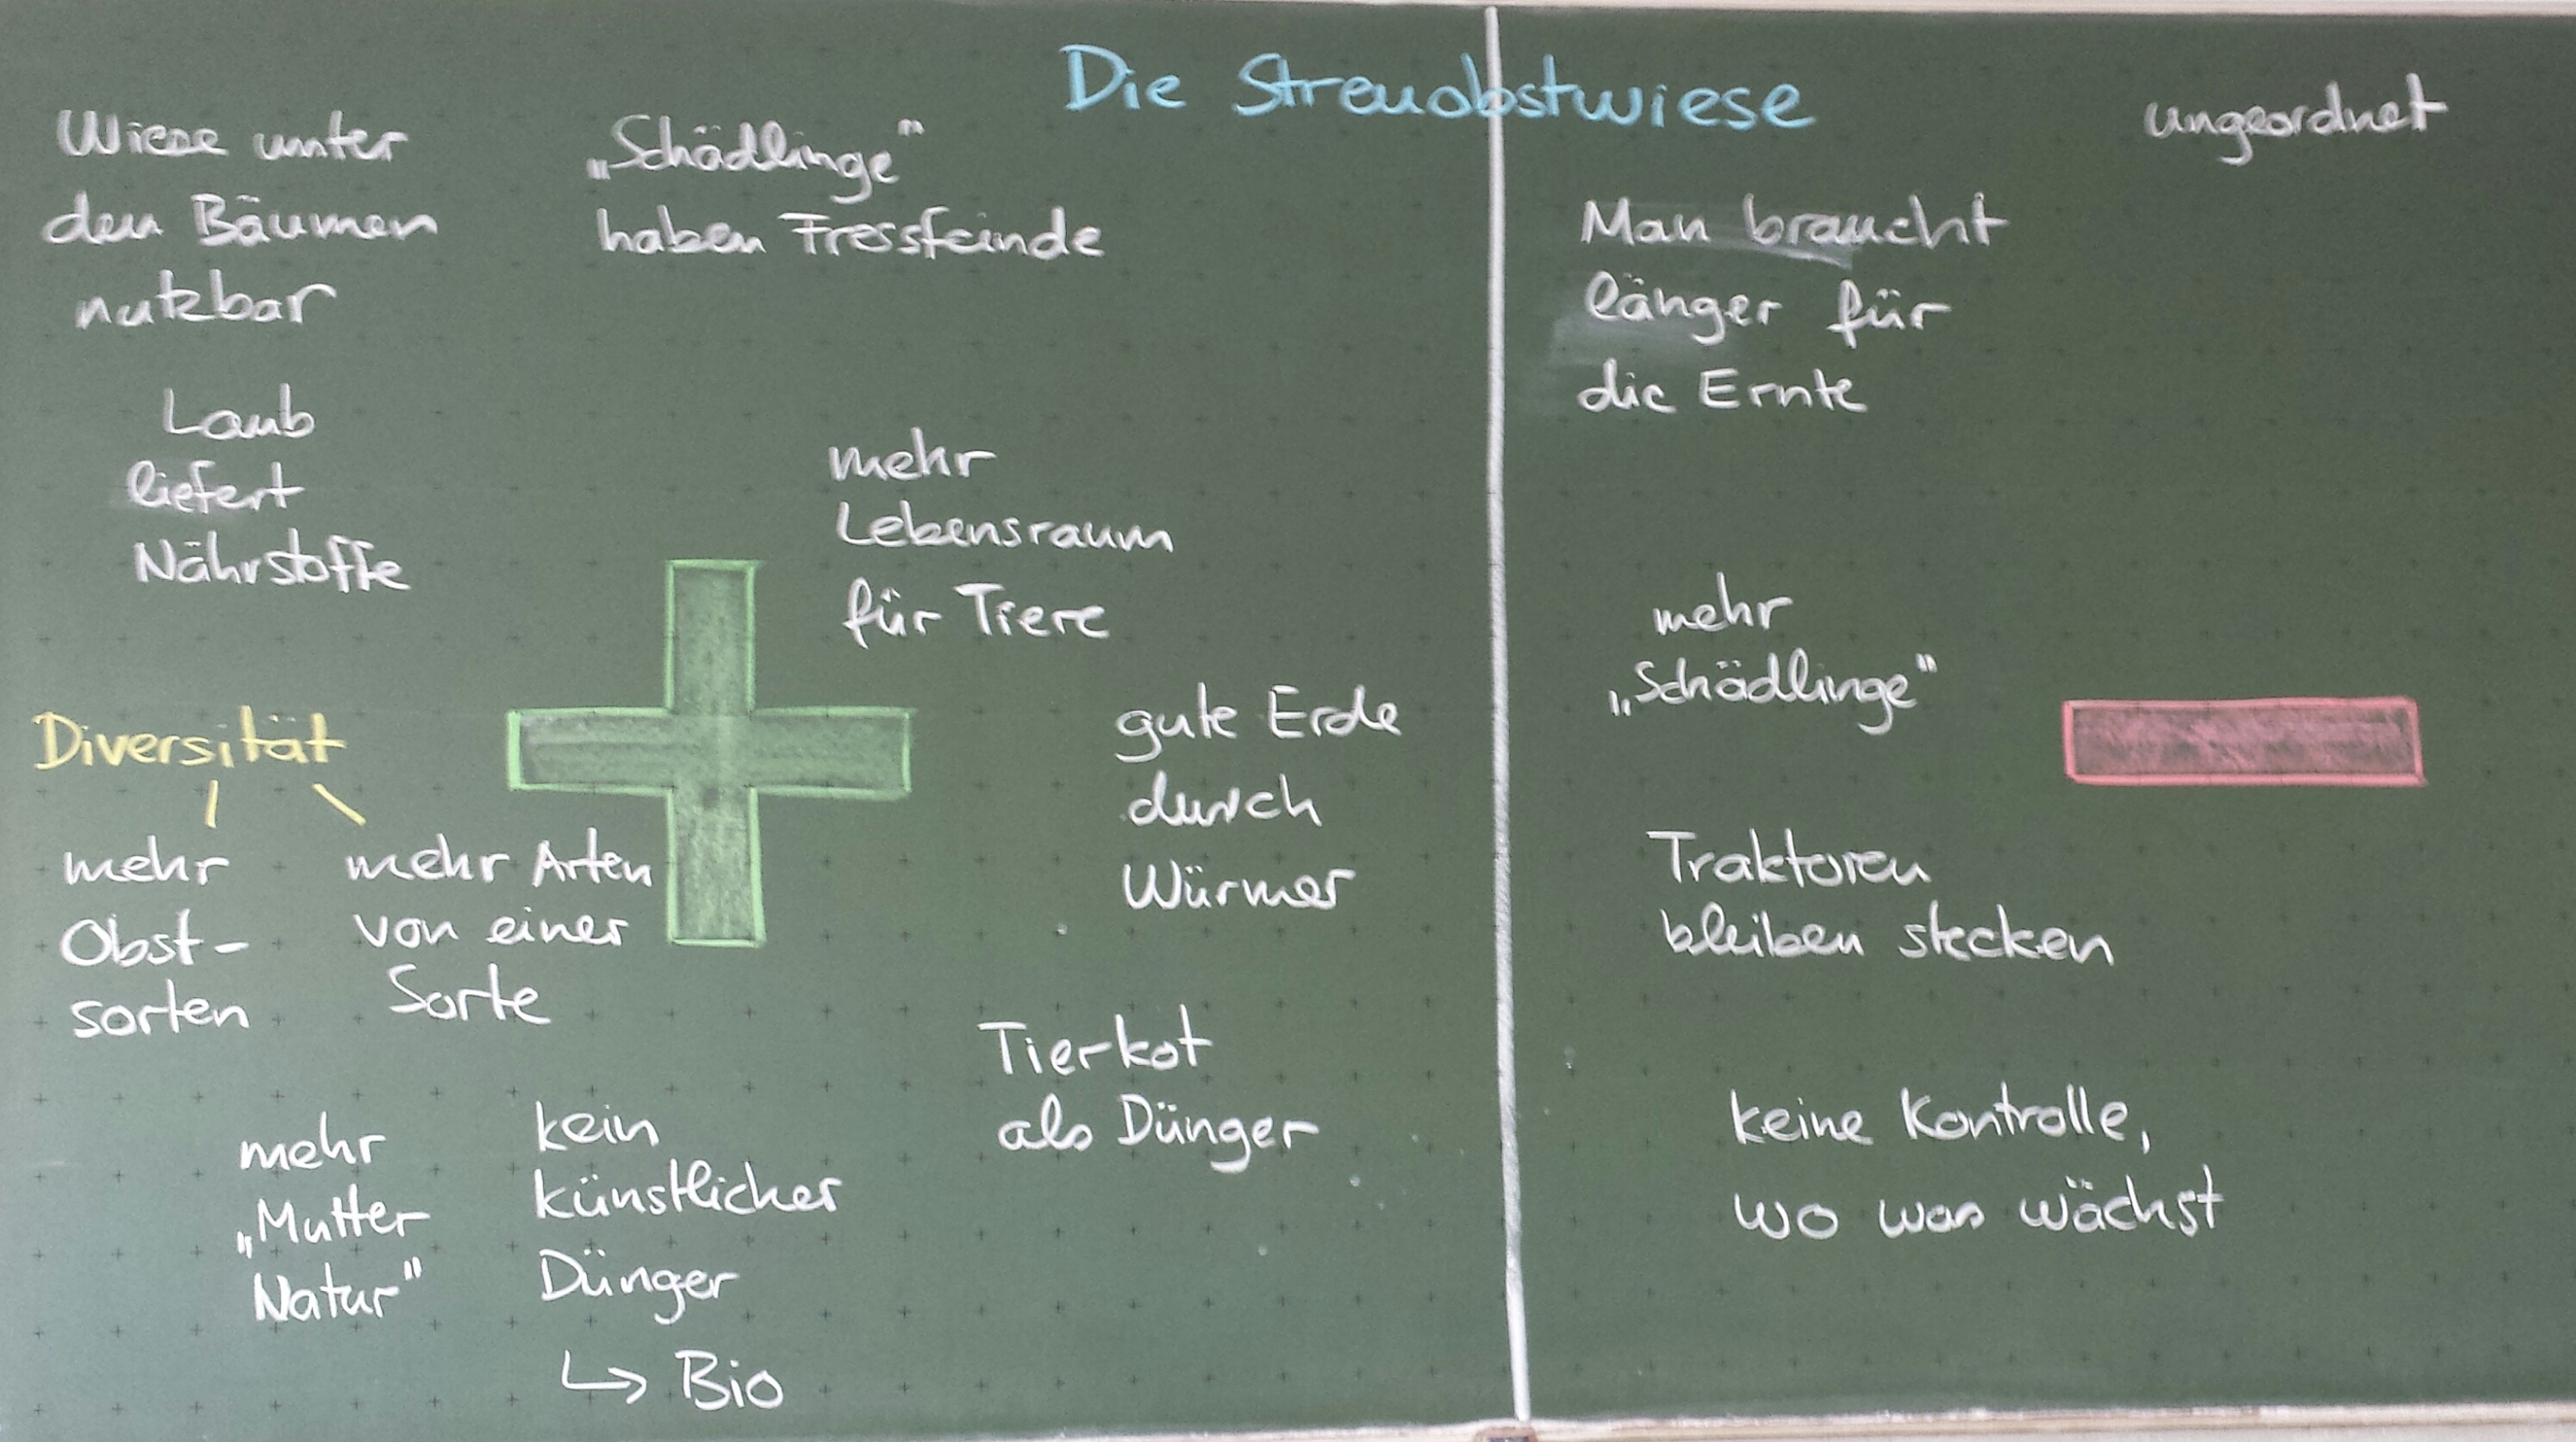 Die Streuobstwiese
Wiese unter
den Bäumen
nutzbar
„Schädlinge"
haben Fressfeinde
Laub
liefert
Nährstoffe
mehr
Lebensraum
für Tiere
Diversität
mehr
Obst-
sorten
mehr Arten
von einer
Sorte
gute Erde
durch
Würmer
Tierkot
als Dünger
mehr
„Mutter
Natur"
kein
künstlicher
Dünger
↳ Bio
ungeordnet
Man braucht
länger für
die Ernte
mehr
„Schädlinge"
Traktoren
bleiben stecken
keine Kontrolle,
wo was wächst